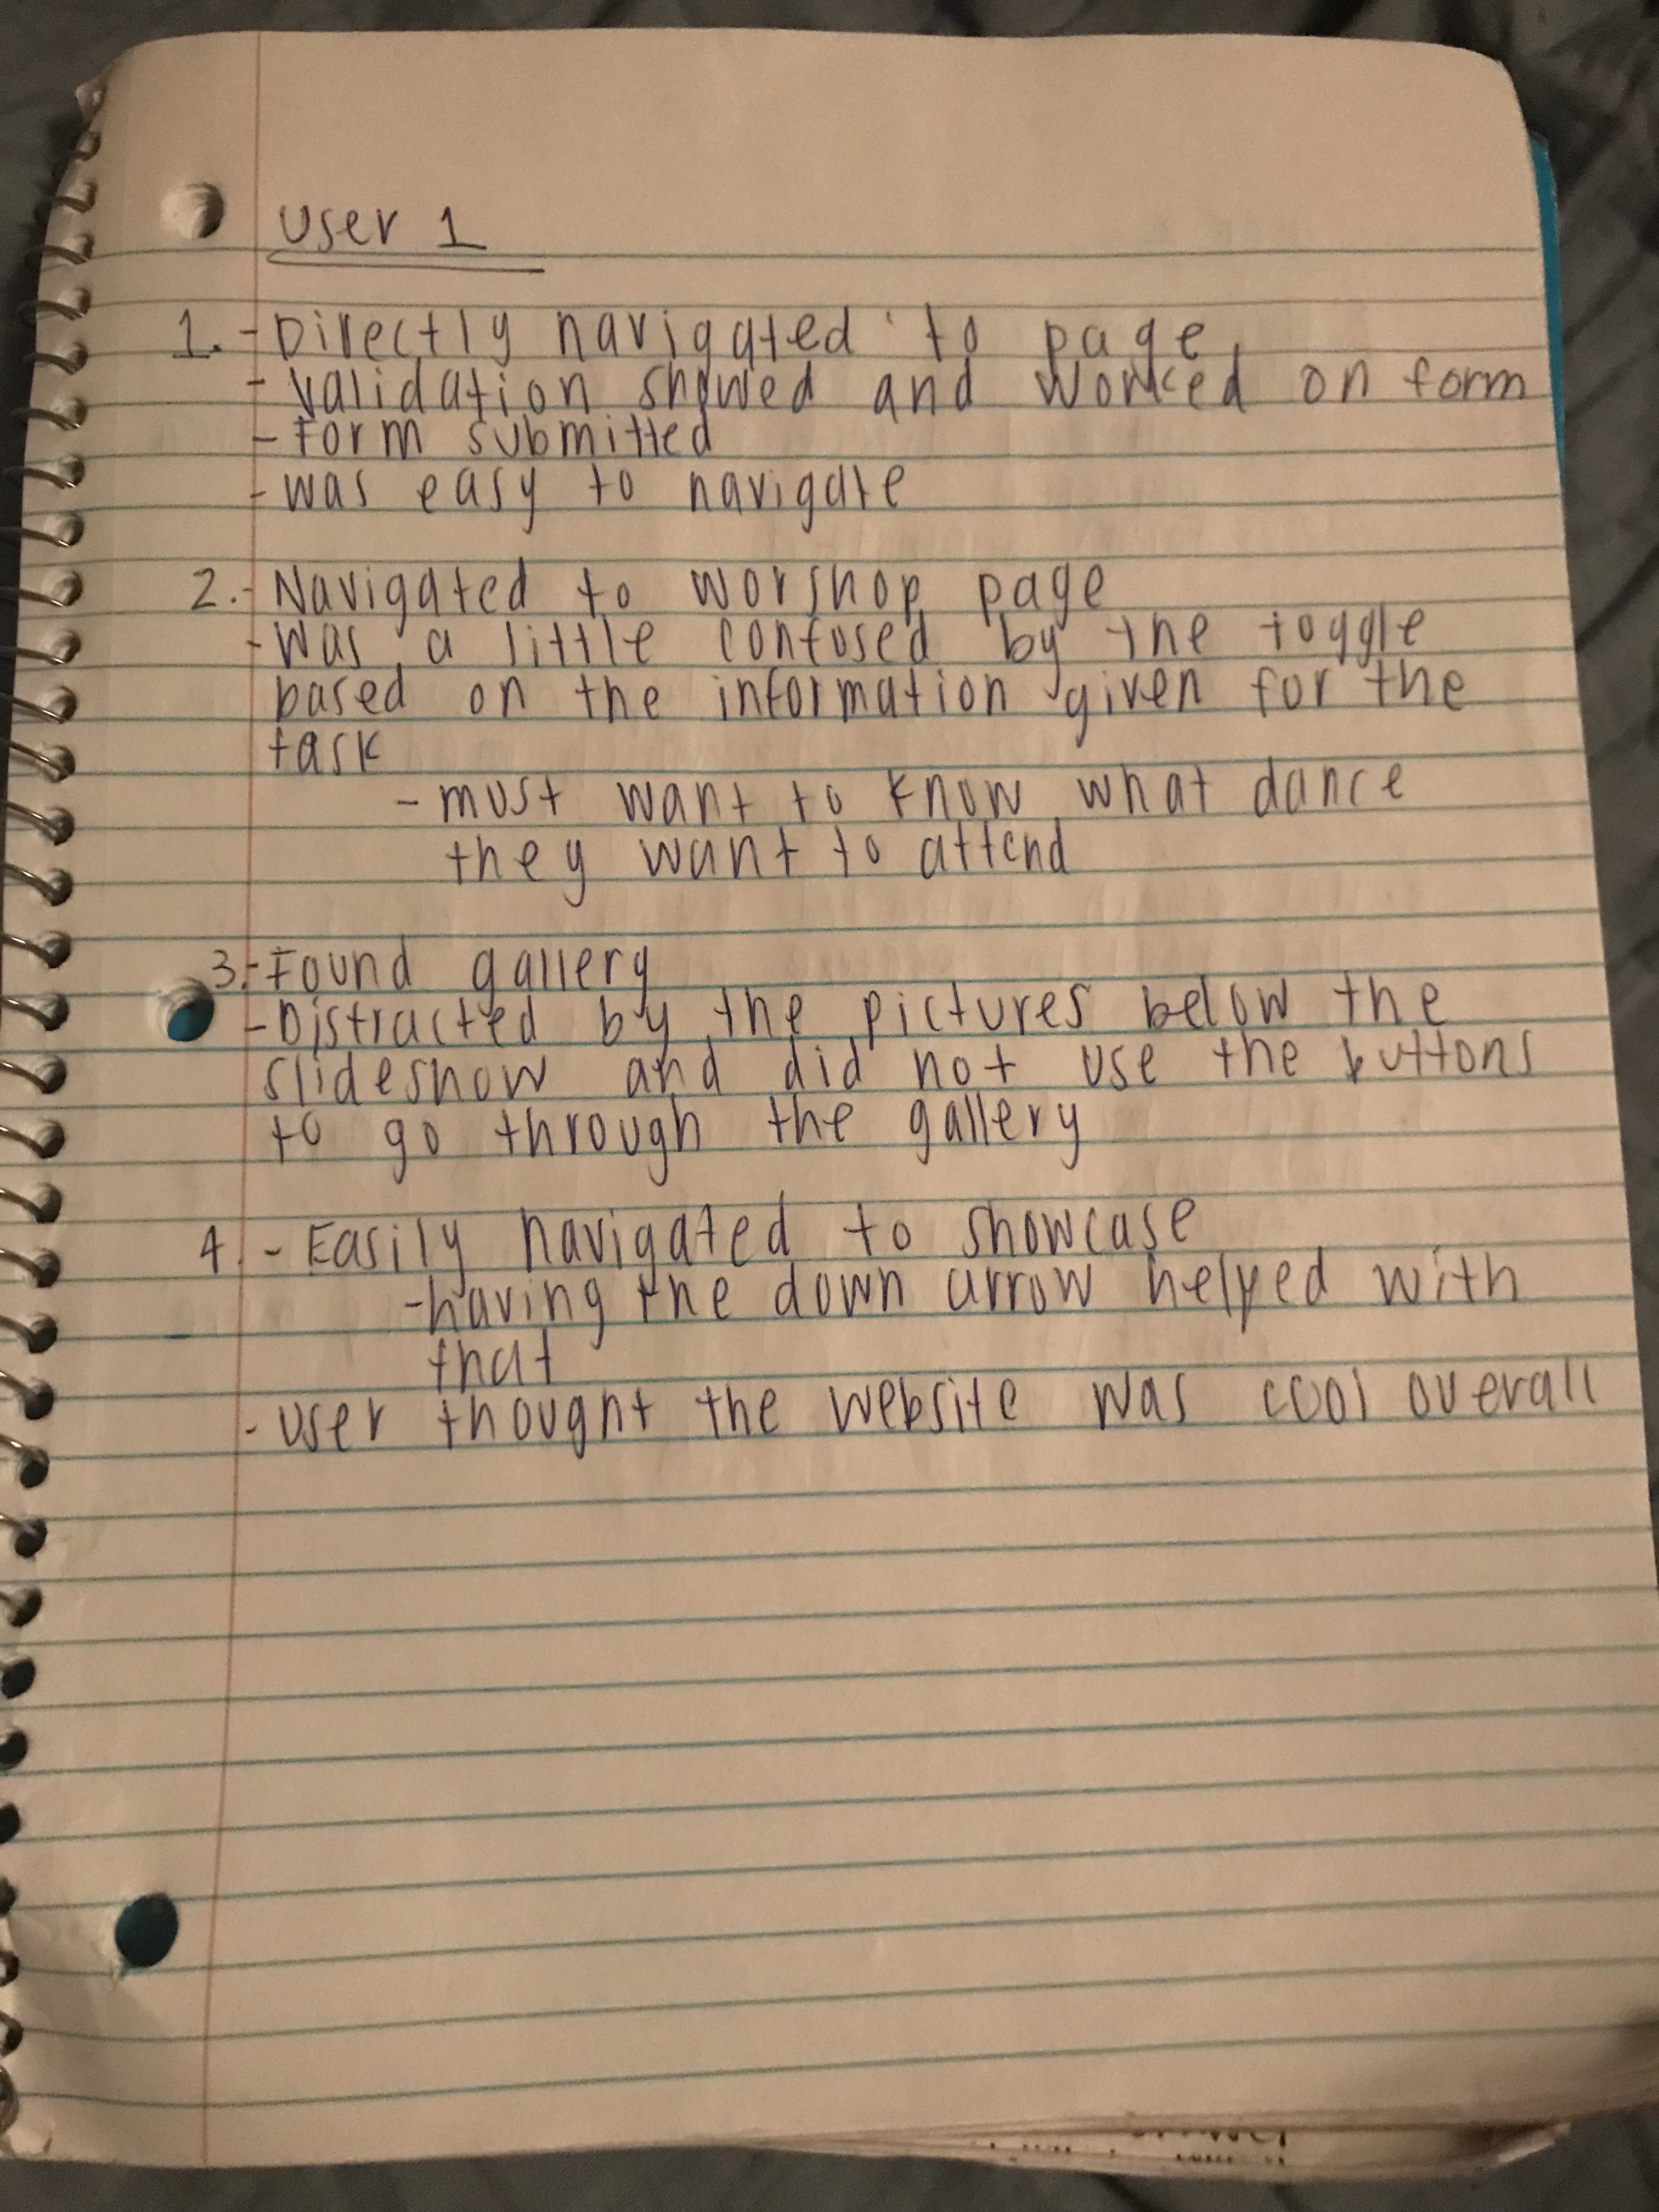 User 1
1. - Directly navigated to page
- validation showed and worked on form
- Form submitted
- was easy to navigate
2. - Navigated to worshop page
- Was a little confused by the toggle
based on the information given for the
task
- must want to know what dance
they want to attend
3. - Found gallery
- Distracted by the pictures below the
slideshow and did not use the buttons
to go through the gallery
4. - Easily navigated to showcase
- having the down arrow helped with
that
- user thought the website was cool overall